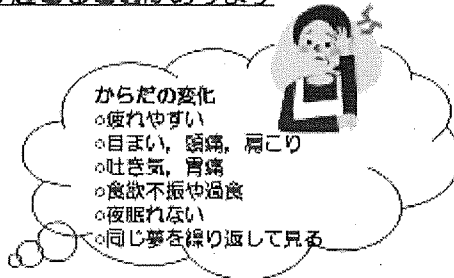 からだの変化
○疲れやすい
○目まい，頭痛，肩こり
○吐き気，胃痛
○食欲不振や過食
○夜眠れない
○同じ夢を繰り返して見る